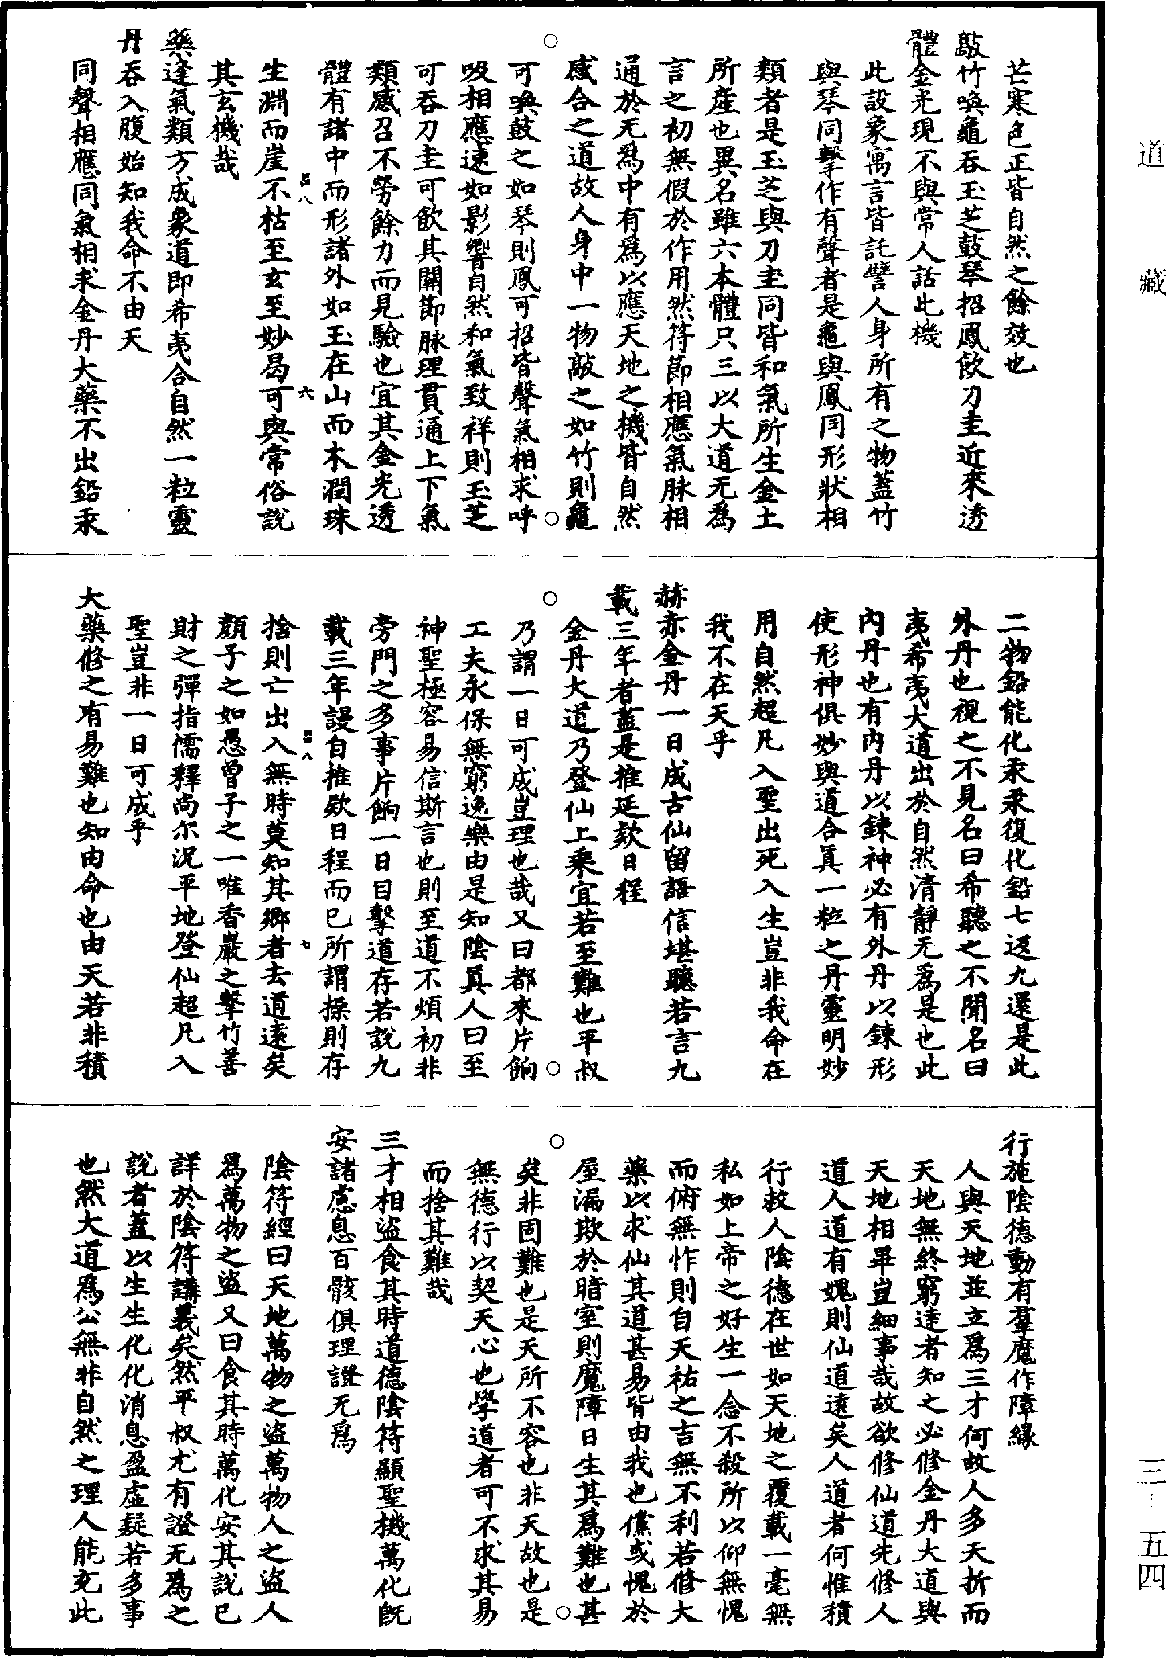 道藏
三一五四
芒寒色正皆自然之餘效也
敲竹喚龜吞玉芝鼓琴招鳳飲刀圭近來透
體金光現不與常人話此機
此設象寓言皆託譬人身所有之物蓋竹
與琴同擊作有聲者是龜與鳳同形狀相
類者是玉芝與刀圭同皆和氣所生金土
所產也異名雖六本體只三以大道无為
言之初無假於作用然符節相應氣脉相
通於无為中有為以應天地之機皆自然
感合之道故人身中一物敲之如竹則龜
可喚鼓之如琴則鳳可招皆聲氣相求呼
吸相應速如影響自然和氣致祥則玉芝
可吞刀圭可飲其關節脉理貫通上下氣
類感召不勞餘力而見驗也宜其金光透
體有諸中而形諸外如玉在山而木潤珠
生淵而崖不枯至玄至妙曷可與常俗說
其玄機哉
藥逢氣類方成象道即希夷合自然一粒靈
丹吞入腹始知我命不由天
同聲相應同氣相求金丹大藥不出鉛汞
二物鉛能化汞汞復化鉛七返九還是此
外丹也視之不見名曰希聽之不聞名曰
夷希夷大道出於自然清靜无為是也此
內丹也有內丹以鍊神必有外丹以鍊形
使形神俱妙與道合真一粒之丹靈明妙
用自然超凡入聖出死入生豈非我命在
我不在天乎
赫赤金丹一日成古仙留語信堪聽若言九
載三年者盡是推延款日程
金丹大道乃登仙上乘宜若至難也平叔
乃謂一日可成豈理也哉又曰都來片餉
工夫永保無窮逸樂由是知陰真人曰至
神聖極容易信斯言也則至道不煩初非
旁門之多事片餉一日目擊道存若說九
載三年謾自推欵日程而已所謂操則存
捨則亡出入無時莫知其鄉者去道遠矣
顏子之如愚曾子之一唯香嚴之擊竹善
財之彈指儒釋尚尔況平地登仙超凡入
聖豈非一日可成乎
大藥修之有易難也知由命也由天若非積
行施陰德動有羣魔作障緣
人與天地並立為三才何故人多夭折而
天地無終窮達者知之必修金丹大道與
天地相畢豈細事哉故欲修仙道先修人
道人道有媿則仙道遠矣人道者何惟積
行救人陰德在世如天地之覆載一毫無
私如上帝之好生一念不殺所以仰無愧
而俯無怍則自天祐之吉無不利若修大
藥以求仙其道甚易皆由我也儻或愧於
屋漏欺於暗室則魔障日生其為難也甚
矣非固難也是天所不容也非天故也是
無德行以契天心也學道者可不求其易
而捨其難哉
三才相盜食其時道德陰符顯聖機萬化旣
安諸慮息百骸俱理證无為
陰符經曰天地萬物之盜萬物人之盜人
為萬物之盜又曰食其時萬化安其說已
詳於陰符講義矣然平叔尤有證无為之
說者蓋以生生化化消息盈虛疑若多事
也然大道為公無非自然之理人能充此